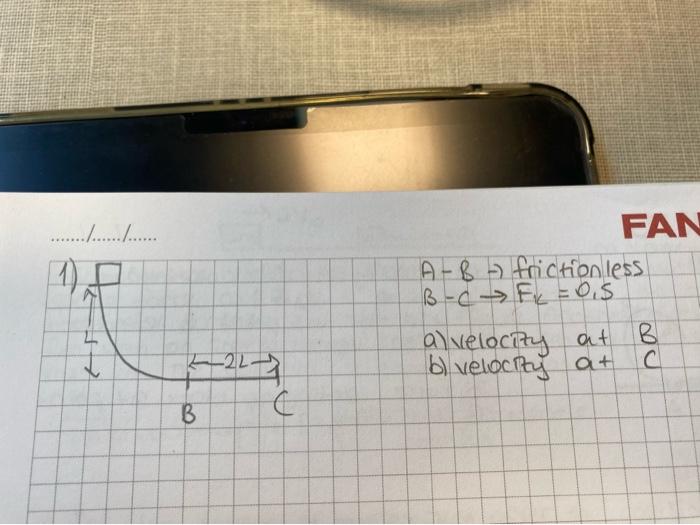 ....../....../......
FAN
1)
A-B → frictionless
B-C → Fk = 0,5
a) velocity at B
b) velocity at C
L
2L
B
C